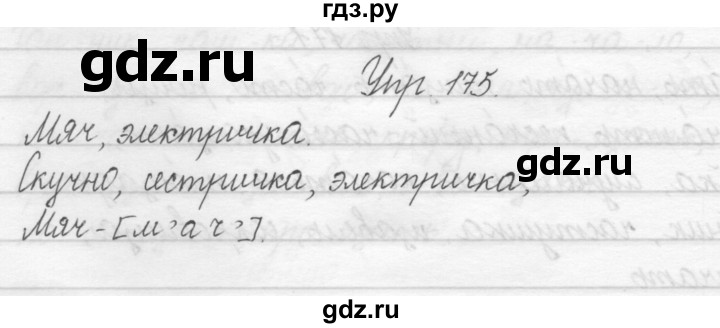 гдз.ру
gdz.ru
Упр. 175.
Мяч, электричка.
gdz.ru
Скучно, сестричка, электричка,
Мяч - [м'ач'].
gdz.ru